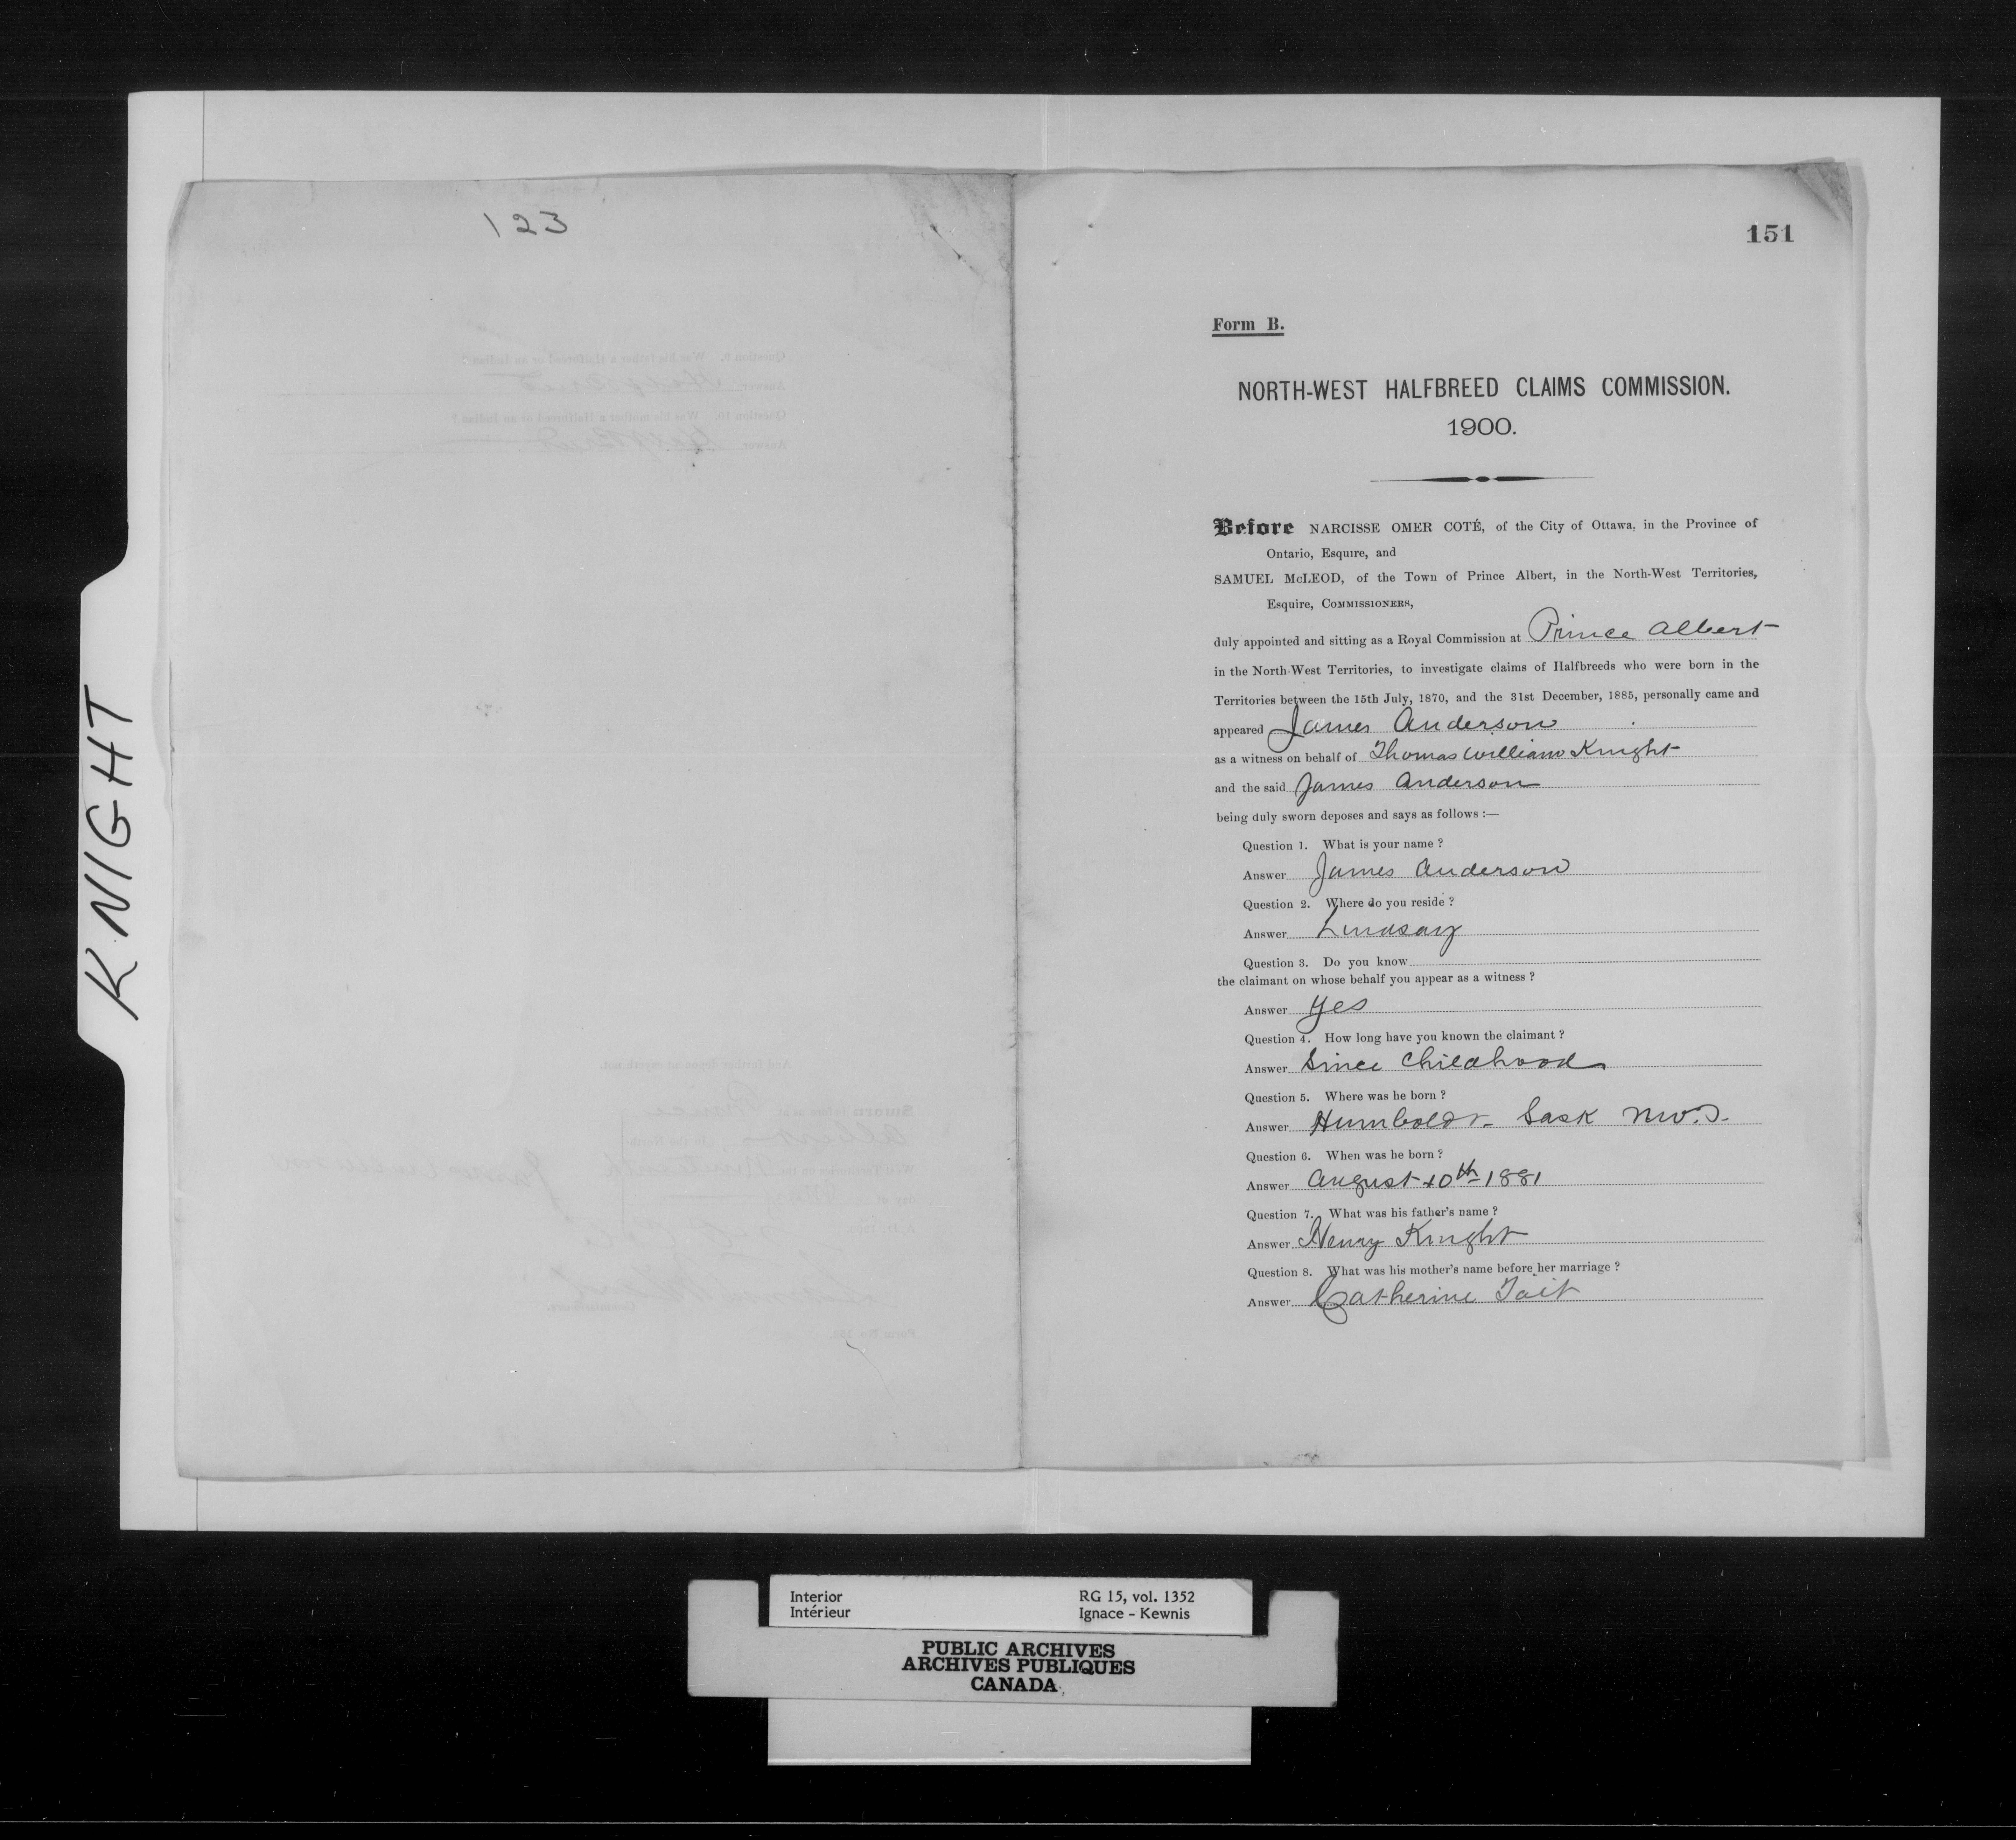 KNIGHT
123
151
Form B.
NORTH-WEST HALFBREED CLAIMS COMMISSION.
1900.
Before NARCISSE OMER COTÉ, of the City of Ottawa, in the Province of
Ontario, Esquire, and
SAMUEL McLEOD, of the Town of Prince Albert, in the North-West Territories,
Esquire, COMMISSIONERS,
duly appointed and sitting as a Royal Commission at Prince Albert
in the North-West Territories, to investigate claims of Halfbreeds who were born in the
Territories between the 15th July, 1870, and the 31st December, 1885, personally came and
appeared James Anderson
as a witness on behalf of Thomas William Knight
and the said James Anderson
being duly sworn deposes and says as follows :—
Question 1. What is your name ?
Answer James Anderson
Question 2. Where do you reside ?
Answer Lindsay
Question 3. Do you know
the claimant on whose behalf you appear as a witness ?
Answer Yes
Question 4. How long have you known the claimant ?
Answer Since Childhood
Question 5. Where was he born ?
Answer Humboldt Sask NW.T.
Question 6. When was he born ?
Answer August 10th 1881
Question 7. What was his father's name ?
Answer Henry Knight
Question 8. What was his mother's name before her marriage ?
Answer Catherine Tait
Interior RG 15, vol. 1352
Intérieur Ignace - Kewnis
PUBLIC ARCHIVES
ARCHIVES PUBLIQUES
CANADA